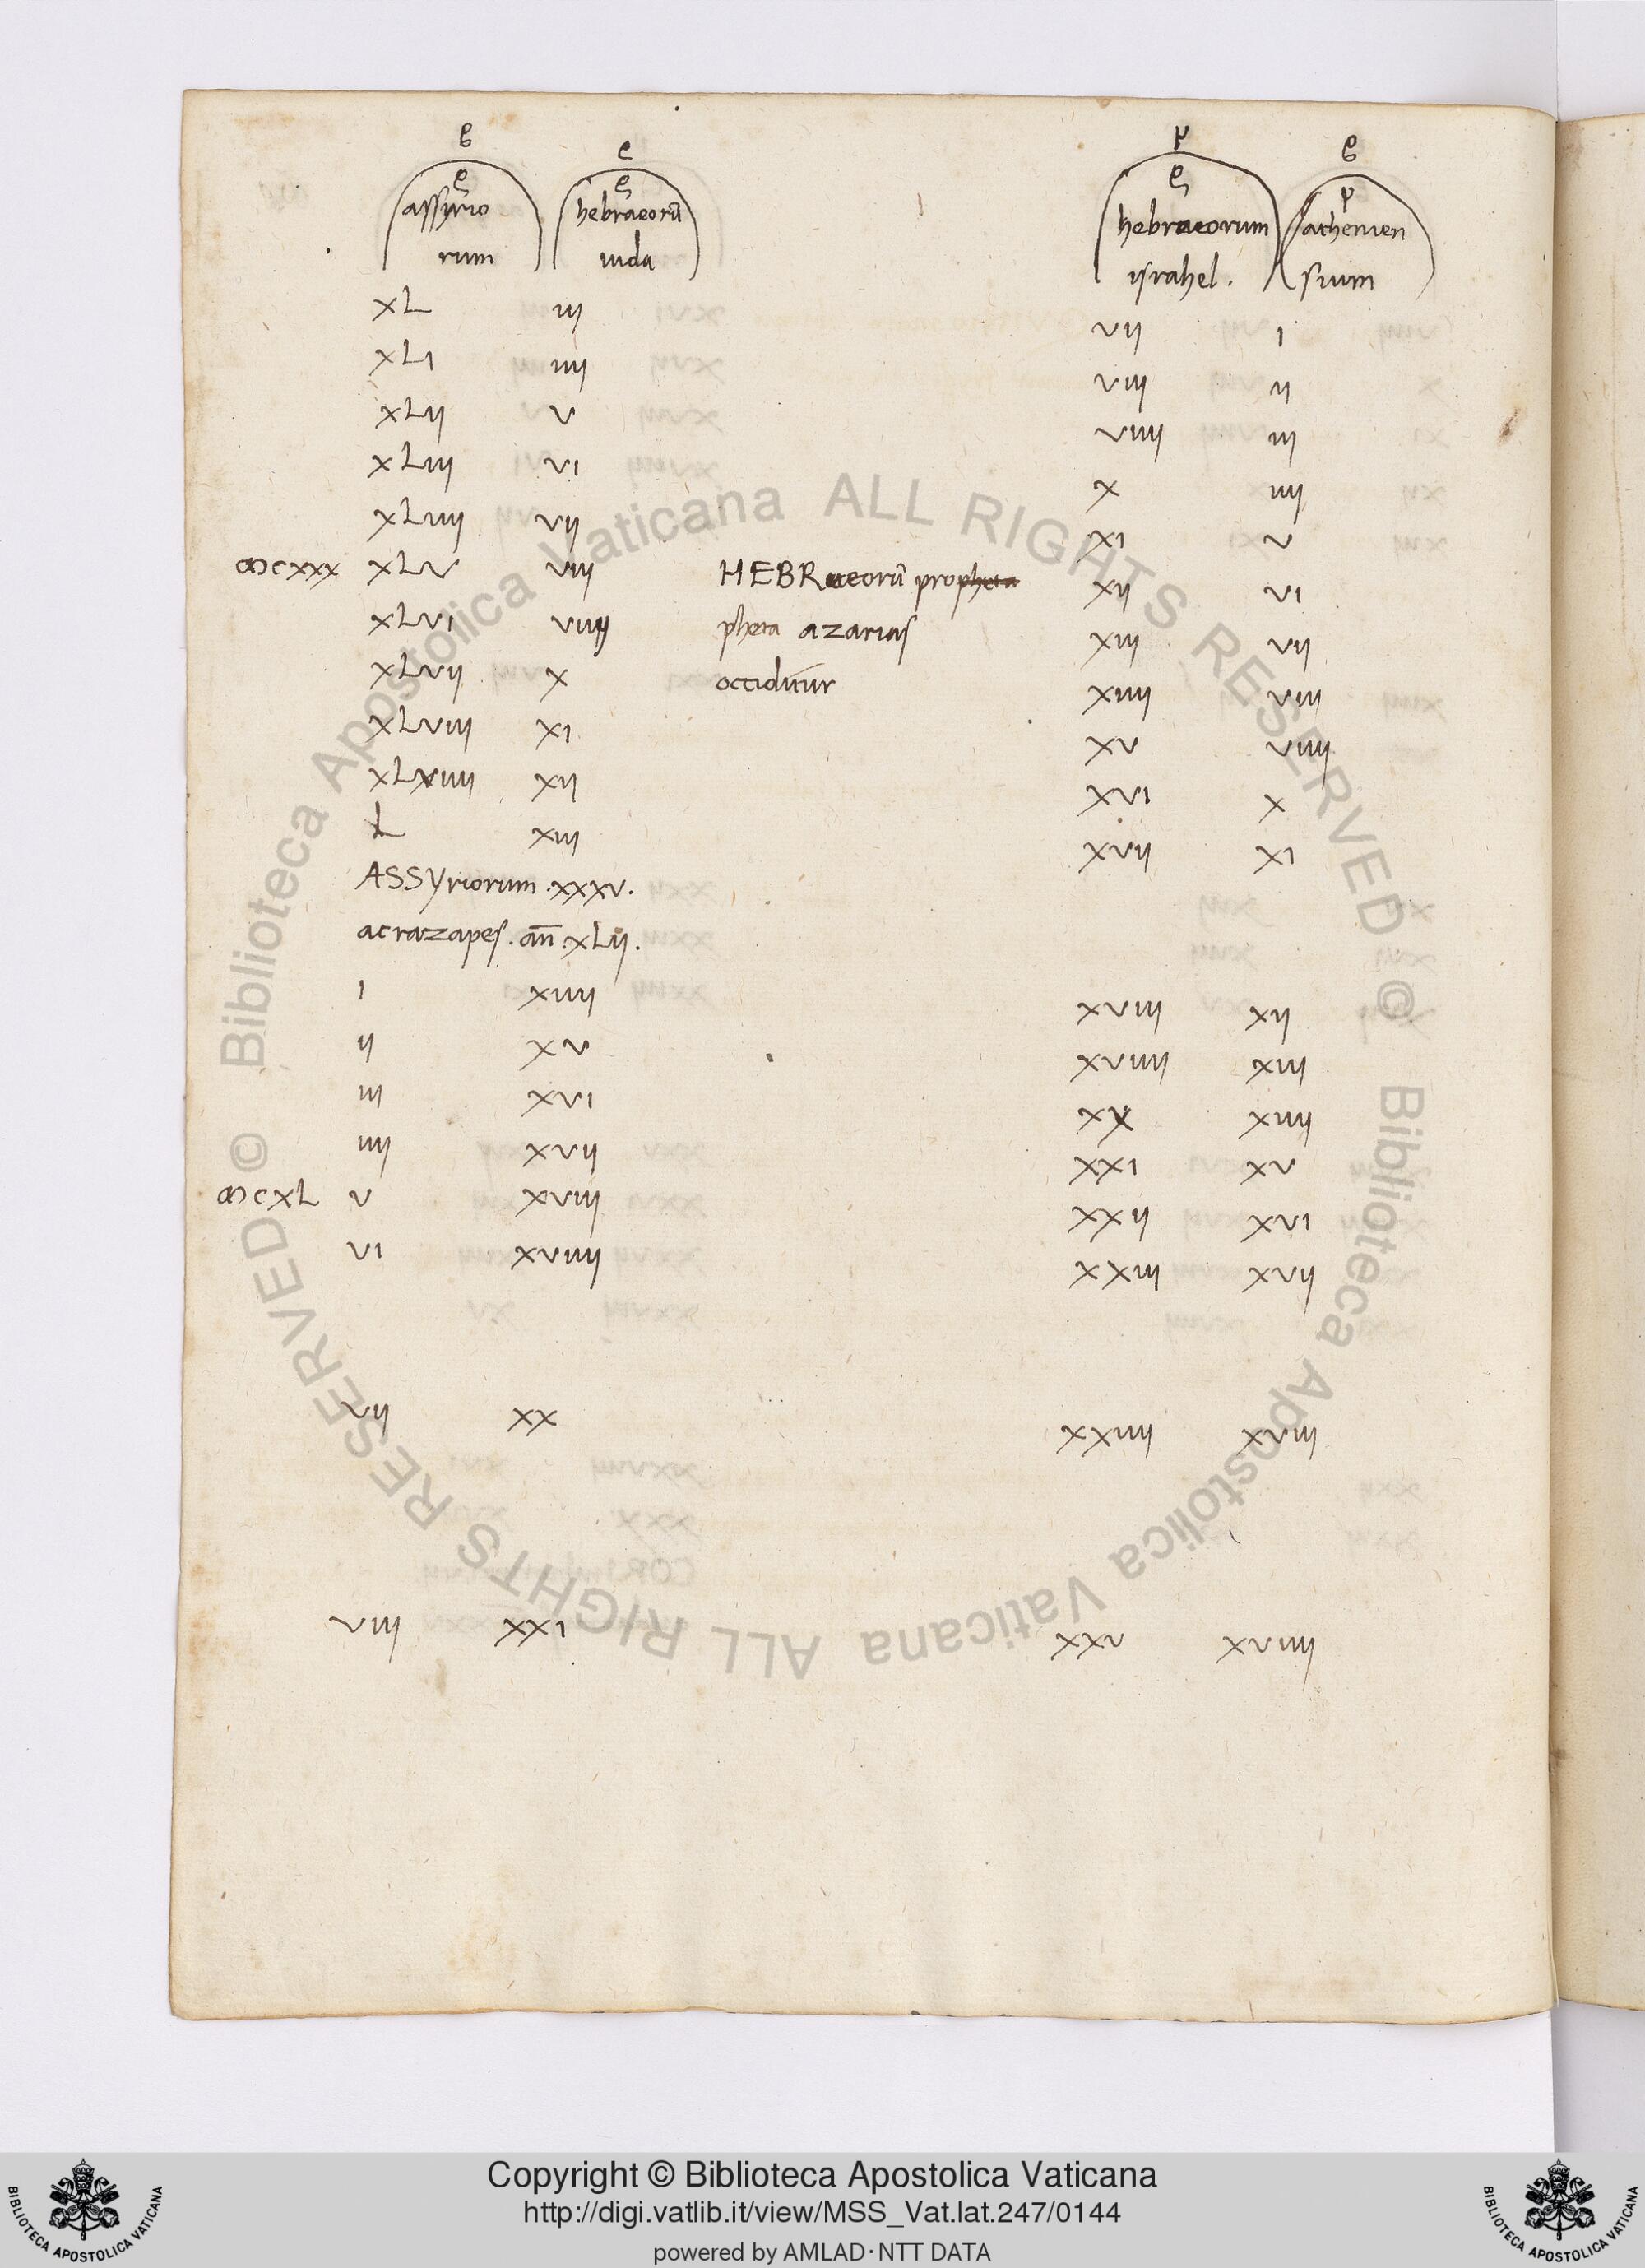 assyrio
rum
hebraeorū
iuda
hebraeorum
israhel.
athenien
sium
XL iii vii i
XLi iiii viii ii
XLii v viiii iii
XLiii vi x iiii
XLiiii vii xi v
ꝏcxxx XLv viii HEBRaeorū propheta xii vi
XLvi viiii pheta azarias xiii vii
XLvii x occidit̄ur xiiii viii
XLviii xi xv viiii
XLviiii xii xvi x
L xiii xvii xi
ASSyriorum .xxxv.
acrazapes. an̄ .xLii.
i xiiii xviii xii
ii xv xviiii xiii
iii xvi xx xiiii
iiii xvii xxi xv
ꝏcxL v xviii xxii xvi
vi xviiii xxiii xvii
vii xx xxiiii xviii
viii xxi xxv xviiii
Biblioteca Apostolica Vaticana ALL RIGHTS RESERVED ©
Biblioteca Apostolica Vaticana ALL RIGHTS RESERVED ©
Copyright © Biblioteca Apostolica Vaticana
http://digi.vatlib.it/view/MSS_Vat.lat.247/0144
powered by AMLAD·NTT DATA
BIBLIOTECA APOSTOLICA VATICANA
BIBLIOTECA APOSTOLICA VATICANA